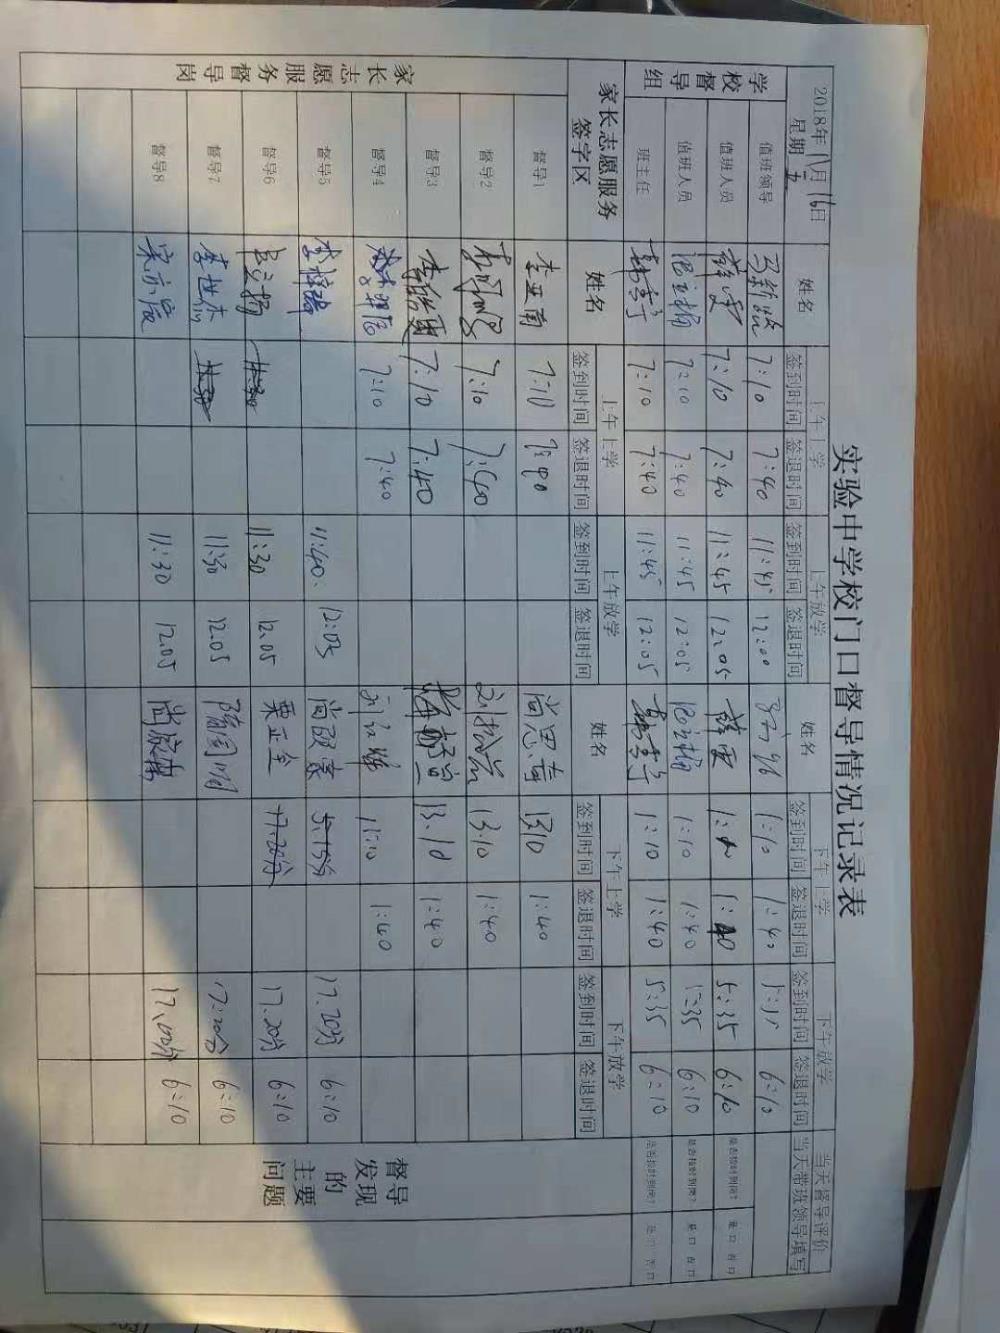 实验中学校门口督导情况记录表
2018年11月16日
星期五
姓名 上午上学 上午放学 姓名 下午上学 下午放学 当天督导评价
签到时间 签退时间 签到时间 签退时间 签到时间 签退时间 签到时间 签退时间 当天带班领导填写
学校督导组
值班领导 7:10 7:40 11:45 12:00 1:10 1:40 6:10
值班人员 薛雯 7:10 7:40 11:45 12:05 薛雯 1:40 5:35 6:10 是否按时到岗? 是口 否口
值班人员 7:10 7:40 11:45 12:05 1:10 1:40 5:35 6:10 是否按时到岗? 是口 否口
班主任 7:10 7:40 11:45 12:05 1:10 1:40 5:35 6:10 是否按时到岗? 是口 否口
家长志愿服务
签字区 姓名 上午上学 上午放学 姓名 下午上学 下午放学
签到时间 签退时间 签到时间 签退时间 签到时间 签退时间 签到时间 签退时间
督导发现的主要问题
家长志愿服务督导岗
督导1 李亚南 7:10 7:40 尚思 1310 1:40
督导2 7:10 7:40 13.10 1:40
督导3 7:10 7:40 13.10 1:40
督导4 7:10 7:40 1:40
督导5 李梓 11:40 12:05 尚 5:15分 17.20分 6:10
督导6 11:30 12.05 栗正全 17.20分 17.20分 6:10
督导7 李世杰 11:30 12.05 6:10
督导8 11:30 12.05 尚 6:10